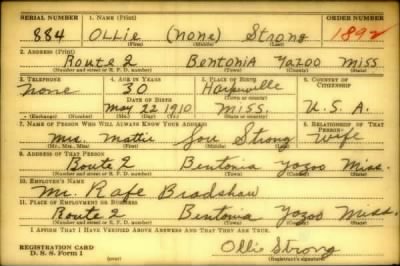 SERIAL NUMBER 1. NAME (Print) ORDER NUMBER
884 OLLIE (None) Strong 1892
(First) (Middle) (Last)
2. ADDRESS (Print)
Route 2 Bentonia Yazoo Miss
(Number and street or R. F. D. number) (Town) (County) (State)
3. TELEPHONE 4. AGE IN YEARS 5. PLACE OF BIRTH 6. COUNTRY OF CITIZENSHIP
None 30 Harperville
DATE OF BIRTH (Town or county)
May 22 1910 Miss. U. S. A.
(Exchange) (Number) (Mo.) (Day) (Yr.) (State or country)
7. NAME OF PERSON WHO WILL ALWAYS KNOW YOUR ADDRESS 8. RELATIONSHIP OF THAT PERSON
Mrs. Mattie Lou Strong Wife
(Mr., Mrs., Miss) (First) (Middle) (Last)
9. ADDRESS OF THAT PERSON
Route 2 Bentonia Yazoo Miss.
(Number and street or R. F. D. number) (Town) (County) (State)
10. EMPLOYER'S NAME
Mr. Rafe Bradshaw
11. PLACE OF EMPLOYMENT OR BUSINESS
Route 2 Bentonia Yazoo Miss.
(Number and street or R. F. D. number) (Town) (County) (State)
I AFFIRM THAT I HAVE VERIFIED ABOVE ANSWERS AND THAT THEY ARE TRUE.
REGISTRATION CARD Ollie Strong
D. S. S. Form 1 (over) (Registrant's signature)